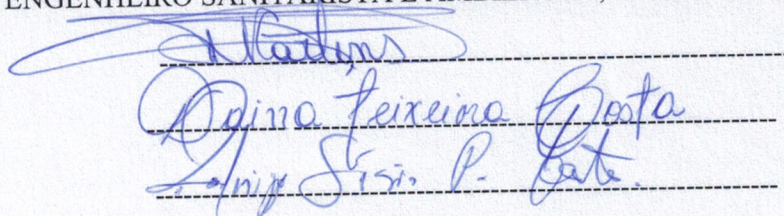 ENGENHEIRO SANITARISTA E AMBIENTAL,
Martins
Daina Teixeira Costa
P. Costa.